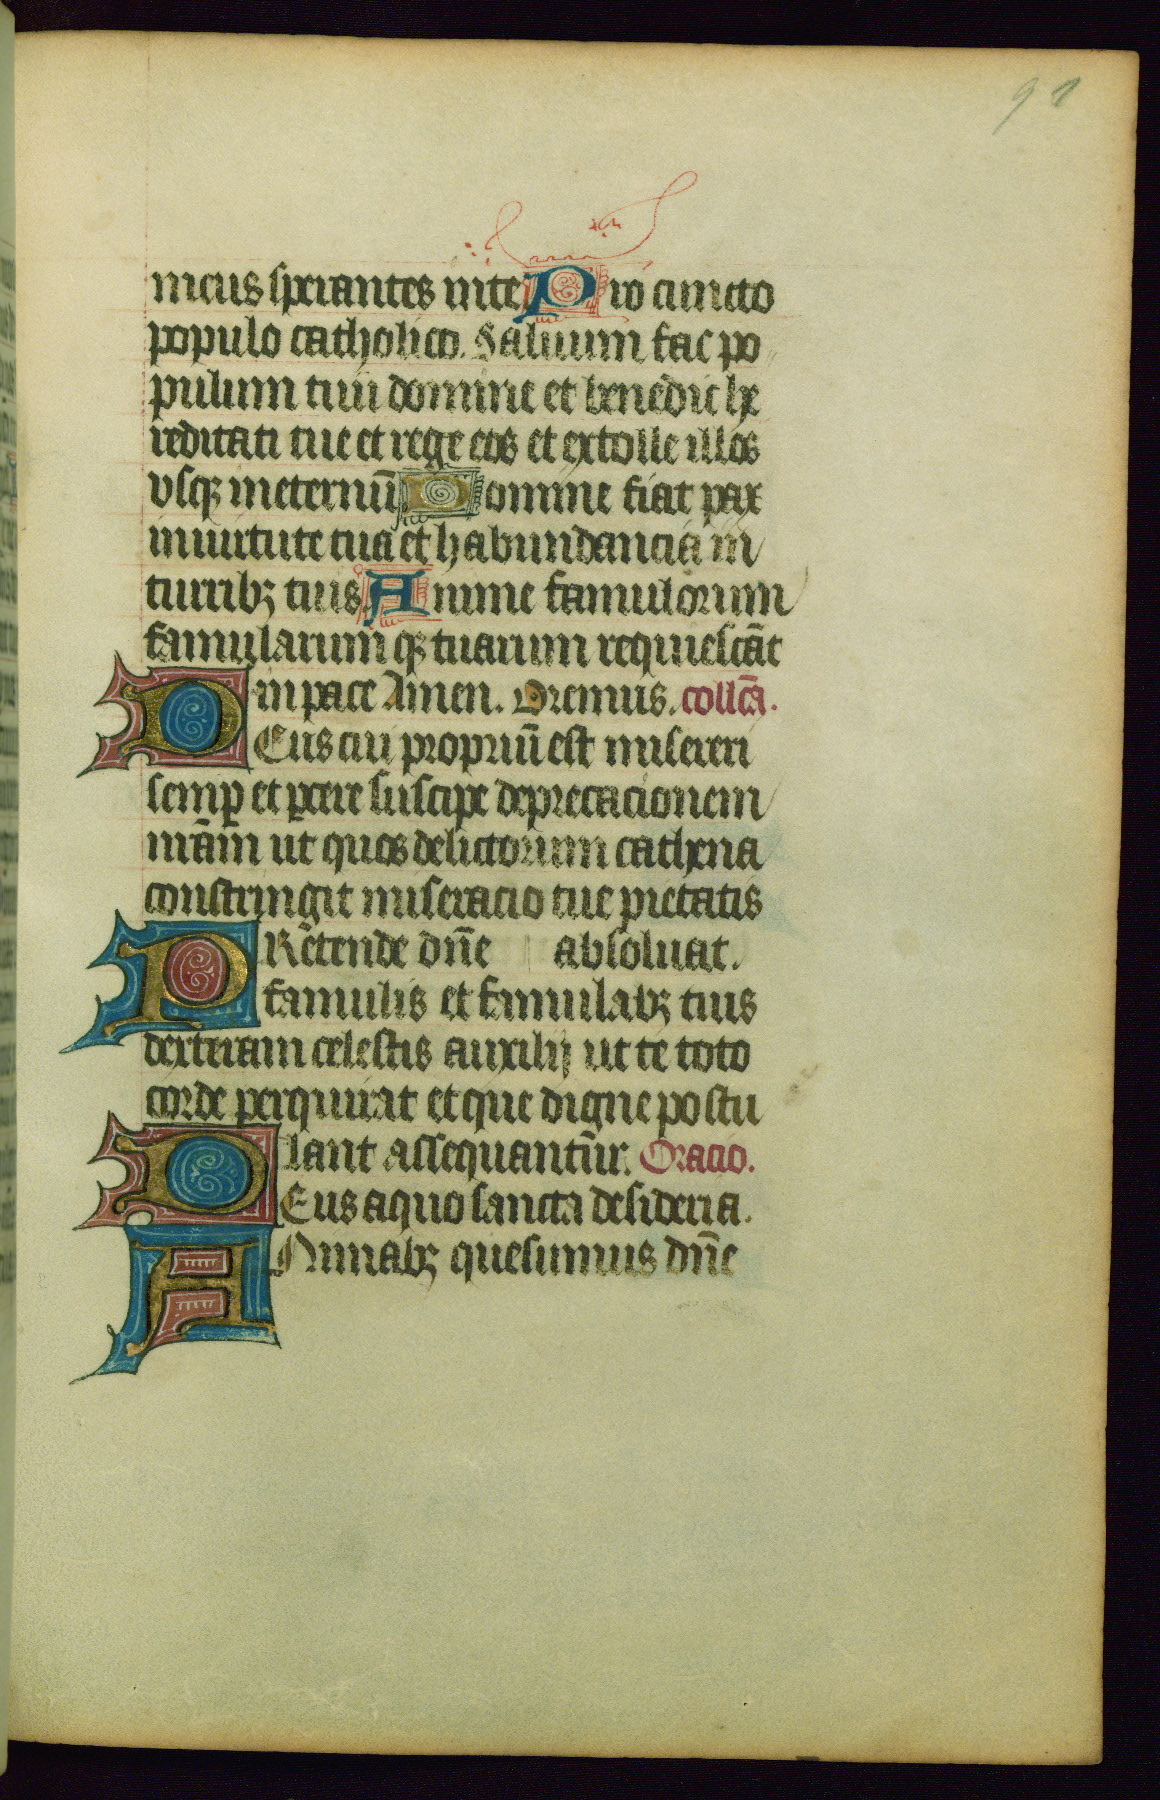 91
meus sperantes in te Pro cuncto
populo catholico. Saluum fac po
pulum tuū domine et benedic he
reditati tue et rege eos et extolle illos
vsqꝫ in eternū Domine fiat pax
in uirtute tua et habundancia in
turribꝫ tuis Anime famulorum
famularumqꝫ tuarum requiescāt
in pace Amen. Oremus. collcā.
DEus cui propriū est misereri
semꝑ et ꝑcere suscipe deprecacionem
nrām ut quos delictorum cathena
constringit miseracio tue pietatis
PRētende dn̄e absoluat.
famulis et famulabꝫ tuis
dexteram celestis auxilij ut te toto
corde perquirāt et que digne postu
lant assequantur̄. Oracio.
DEus a quo sancta desideria.
ANimabꝫ quesumus dn̄e